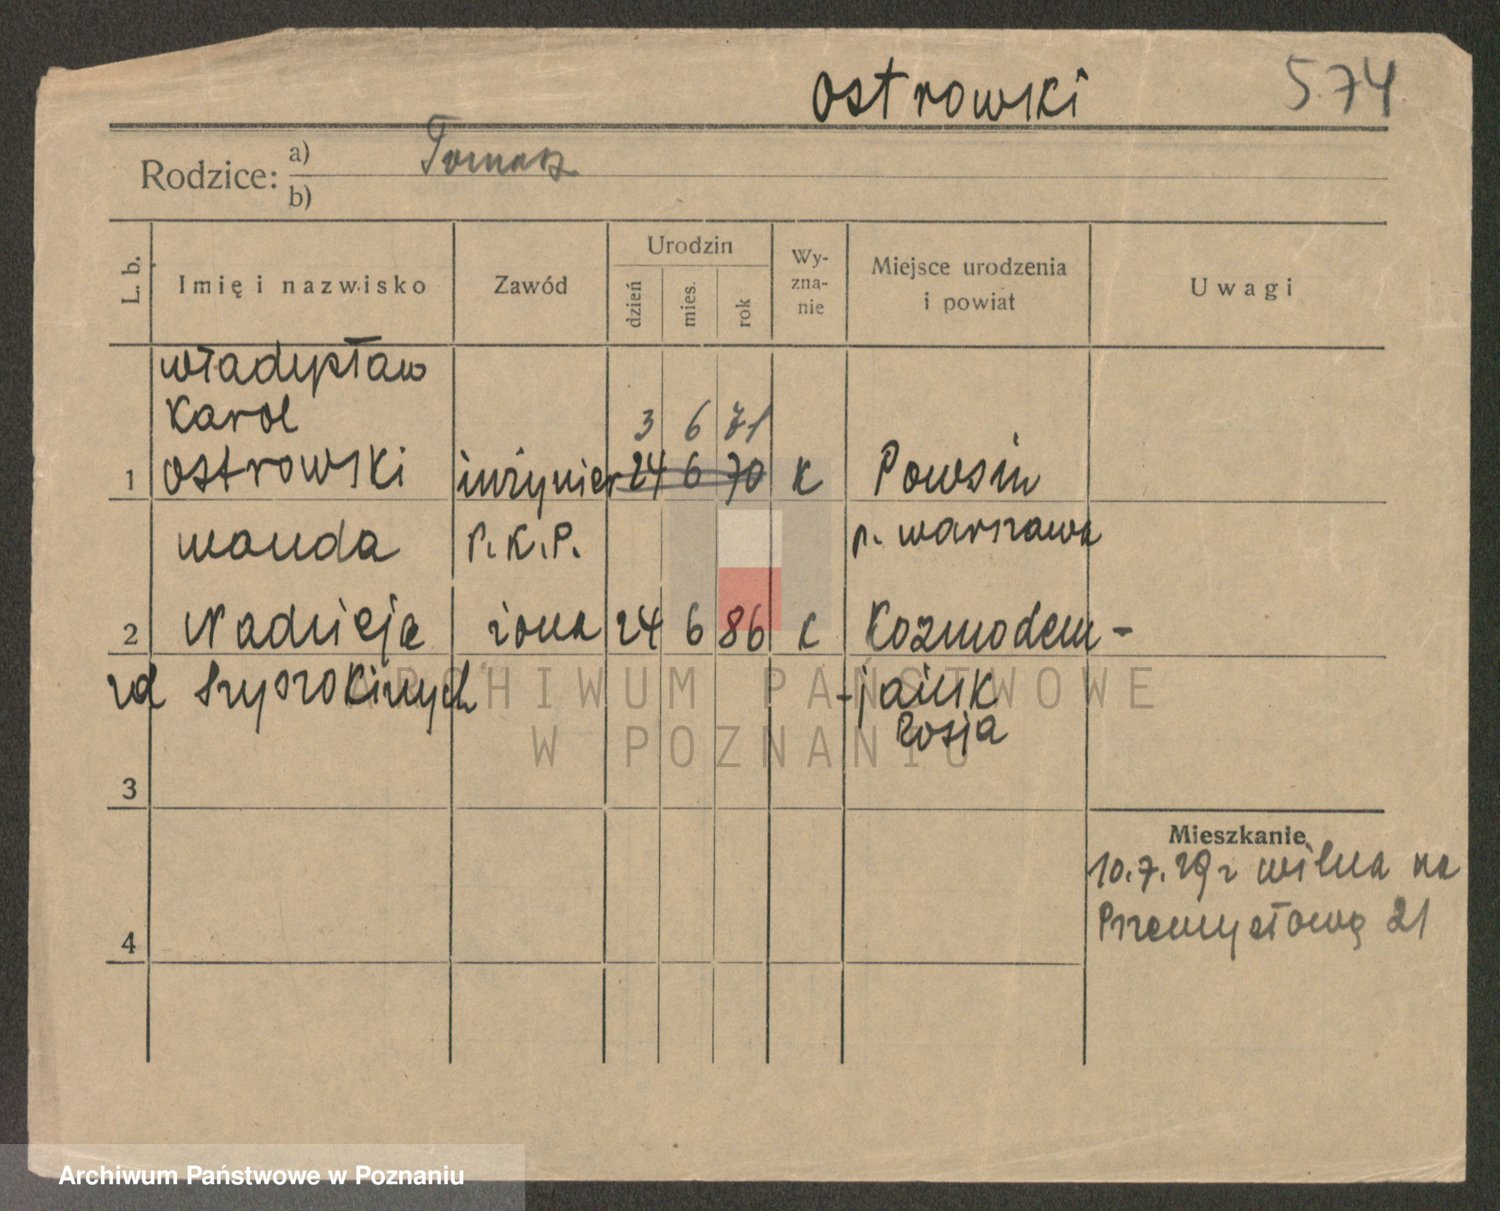 Ostrowski 574
Rodzice: a) Tomasz
b)
L. b. Imię i nazwisko Zawód Urodzin dzień mies. rok Wy-zna-nie Miejsce urodzenia i powiat Uwagi
Władysław
Karol 3 6 71
1 Ostrowski inżynier 24 6 70 K Powsin
Wanda P.K.P. p. Warszawa
2 Nadzieja żona 24 6 86 K Kozmodem-
zd -jańsk
Rosja
3
Mieszkanie
10.7.29 z Wilna na
4 Przemysłową 21
ARCHIWUM PAŃSTWOWE
W POZNANIU
Archiwum Państwowe w Poznaniu